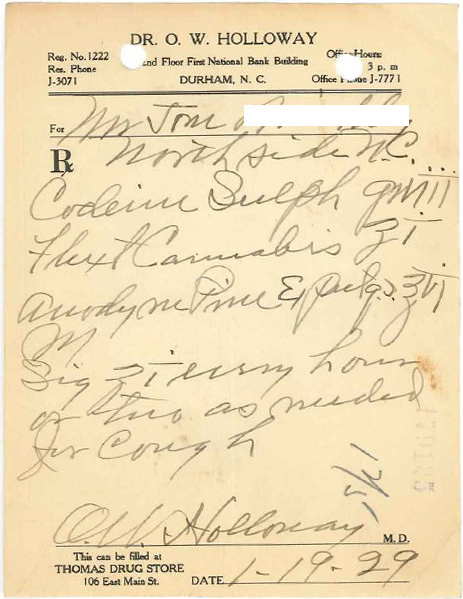 DR. O. W. HOLLOWAY
Reg. No. 1222
Res. Phone
J-3071
2nd Floor First National Bank Building
DURHAM, N. C.
Office Hours:
3 p. m
Office Phone J-7771
For Mr Tom
North side N.C.
℞
Codeine Sulph gr VIII
Flext Cannabis ʒ I
Anodyne Pine Expect. ʒ VI
M
Sig ʒ I every hour
or two as needed
for Cough
O.W. Holloway M. D.
This can be filled at
THOMAS DRUG STORE
106 East Main St.
DATE 1-19-29